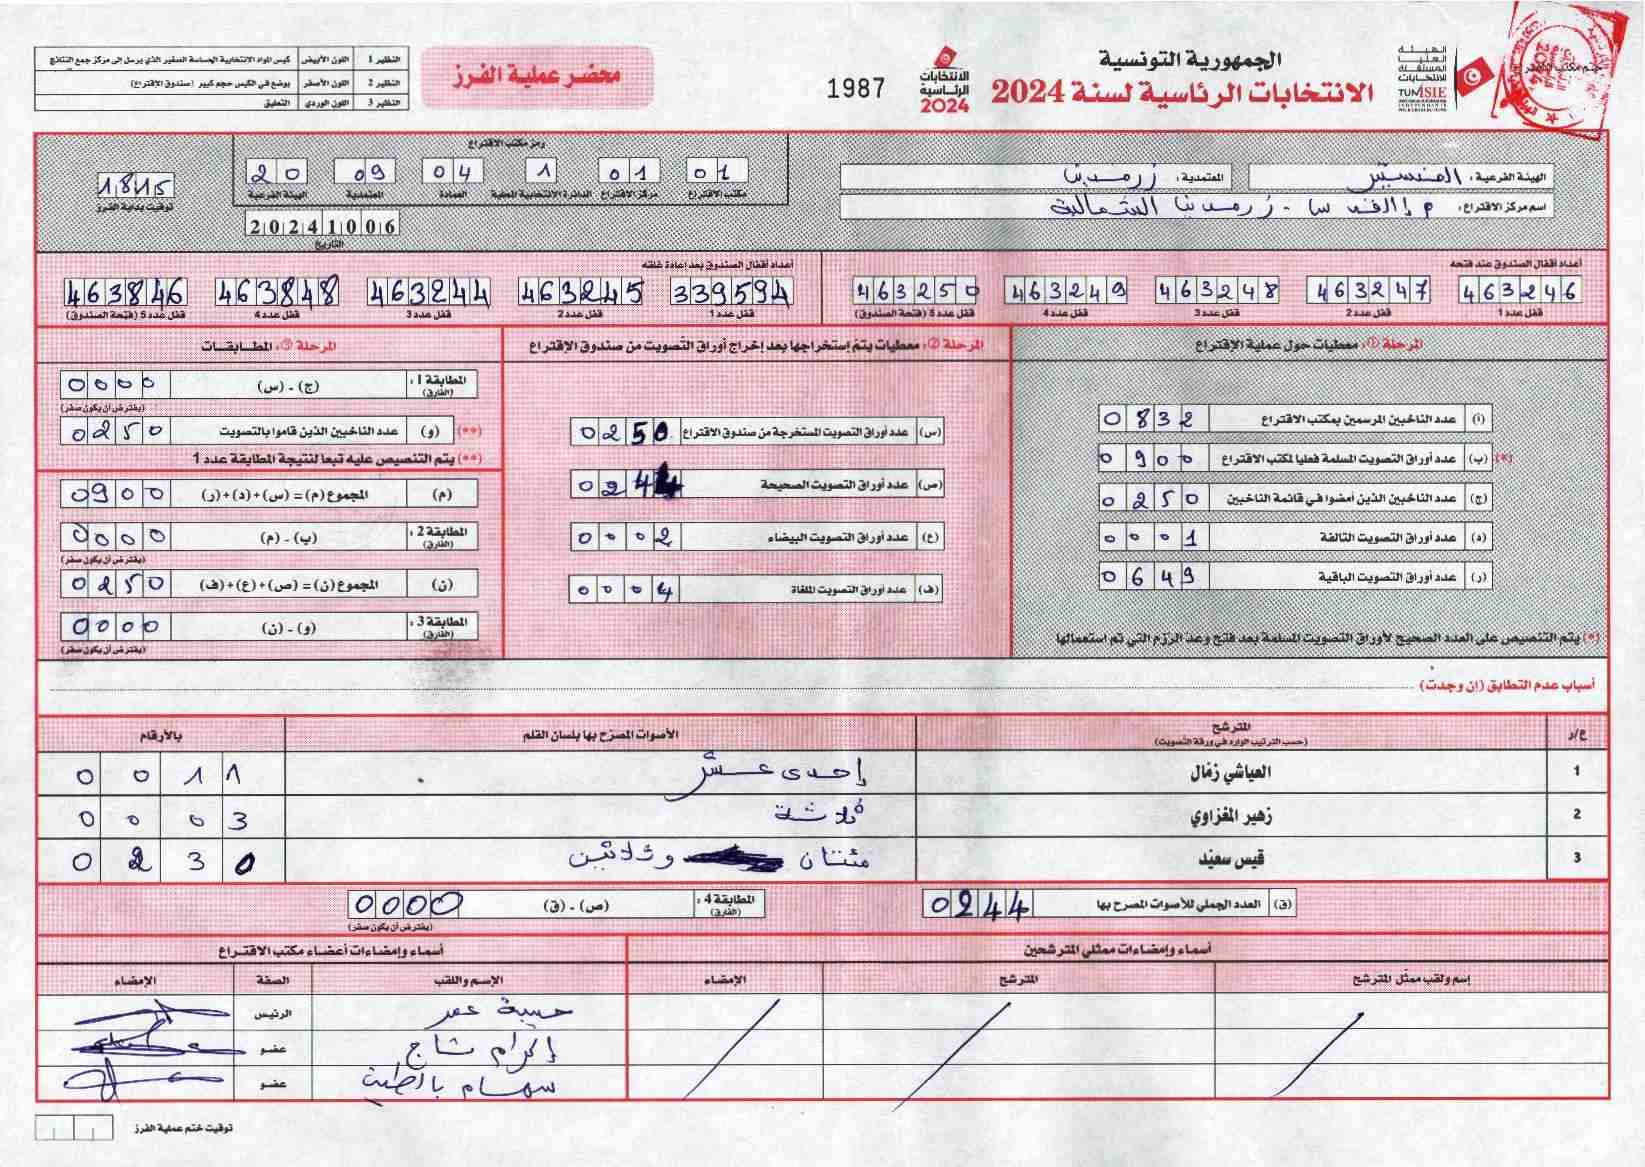 الجمهورية التونسية
الانتخابات الرئاسية لسنة 2024
الهيئة العليا المستقلة للانتخابات
TUNISIE
ختم مكتب
الانتخابات الرئاسية 2024
1987
محضر عملية الفرز
النظير 1 اللون الأبيض كيس المواد الانتخابية الحساسة الصغير الذي يرسل إلى مركز جمع النتائج
النظير 2 اللون الأصفر يوضع في الكيس حجم كبير (صندوق الاقتراع)
النظير 3 اللون الوردي التعليق
الهيئة الفرعية: المنستير
المعتمدية: زرمدين
اسم مركز الاقتراع: زرمدين الشمالية
رمز مكتب الاقتراع
01 01 1 04 09 20
مكتب الاقتراع مركز الاقتراع الدائرة الانتخابية المحلية العمادة المعتمدية الهيئة الفرعية
20241006
التاريخ
1815
توقيت بداية الفرز
أعداد أقفال الصندوق عند فتحه
463246 463247 463248 463249 463250
قفل عدد 1 قفل عدد 2 قفل عدد 3 قفل عدد 4 قفل عدد 5 (فتحة الصندوق)
أعداد أقفال الصندوق بعد إعادة غلقه
339594 463245 463244 463848 463846
قفل عدد 1 قفل عدد 2 قفل عدد 3 قفل عدد 4 قفل عدد 5 (فتحة الصندوق)
المرحلة ①: معطيات حول عملية الإقتراع
(أ) عدد الناخبين المرسمين بمكتب الاقتراع 0832
(*) (ب) عدد أوراق التصويت المسلمة فعليا لمكتب الاقتراع 0900
(ج) عدد الناخبين الذين أمضوا في قائمة الناخبين 0250
(د) عدد أوراق التصويت التالفة 0001
(ر) عدد أوراق التصويت الباقية 0649
(*) يتم التنصيص على العدد الصحيح لأوراق التصويت المسلمة بعد فتح وعد الرزم التي تم استعمالها
المرحلة ②: معطيات يتم إستخراجها بعد إخراج أوراق التصويت من صندوق الإقتراع
(س) عدد أوراق التصويت المستخرجة من صندوق الاقتراع 0250
(ص) عدد أوراق التصويت الصحيحة 0244
(ع) عدد أوراق التصويت البيضاء 0002
(ف) عدد أوراق التصويت الملغاة 0004
المرحلة ③: المطابقات
المطابقة 1: (الفارق) (ج) - (س) 0000
(يفترض أن يكون صفر)
(**) (و) عدد الناخبين الذين قاموا بالتصويت 0250
(**) يتم التنصيص عليه تبعا لنتيجة المطابقة عدد 1
(م) المجموع (م) = (س)+(د)+(ر) 0900
المطابقة 2: (الفارق) (ب) - (م) 0000
(يفترض أن يكون صفر)
(ن) المجموع (ن) = (ص)+(ع)+(ف) 0250
المطابقة 3: (الفارق) (و) - (ن) 0000
(يفترض أن يكون صفر)
أسباب عدم التطابق (إن وجدت)
ع/ر المترشح (حسب الترتيب الوارد في ورقة التصويت) الأصوات المصرح بها بلسان القلم بالأرقام
1 العياشي زمّال إحدى عشر 0011
2 زهير المغزاوي ثلاثة 0003
3 قيس سعيّد مئتان وثلاثين 0230
(ق) العدد الجملي للأصوات المصرح بها 0244
المطابقة 4: (الفارق) (ص) - (ق) 0000
(يفترض أن يكون صفر)
أسماء وإمضاءات ممثلي المترشحين
إسم ولقب ممثل المترشح المترشح الإمضاء
أسماء وإمضاءات أعضاء مكتب الاقتراع
الإسم واللقب الصفة الإمضاء
حبيبة عمر الرئيس
إكرام شاج عضو
سهام بالطيب عضو
توقيت ختم عملية الفرز